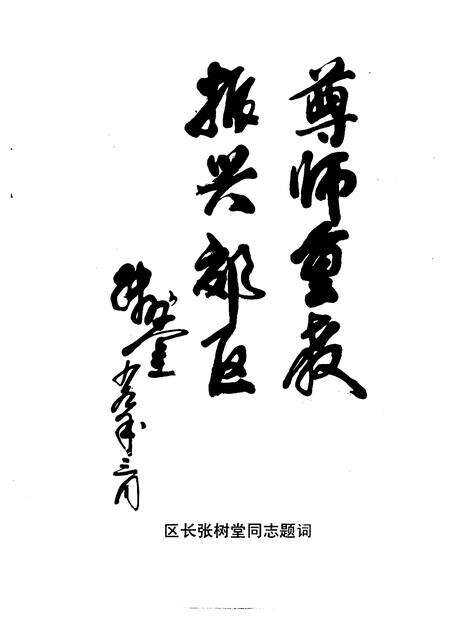 尊师重教
振兴郊区
张树堂
年三月
区长张树堂同志题词